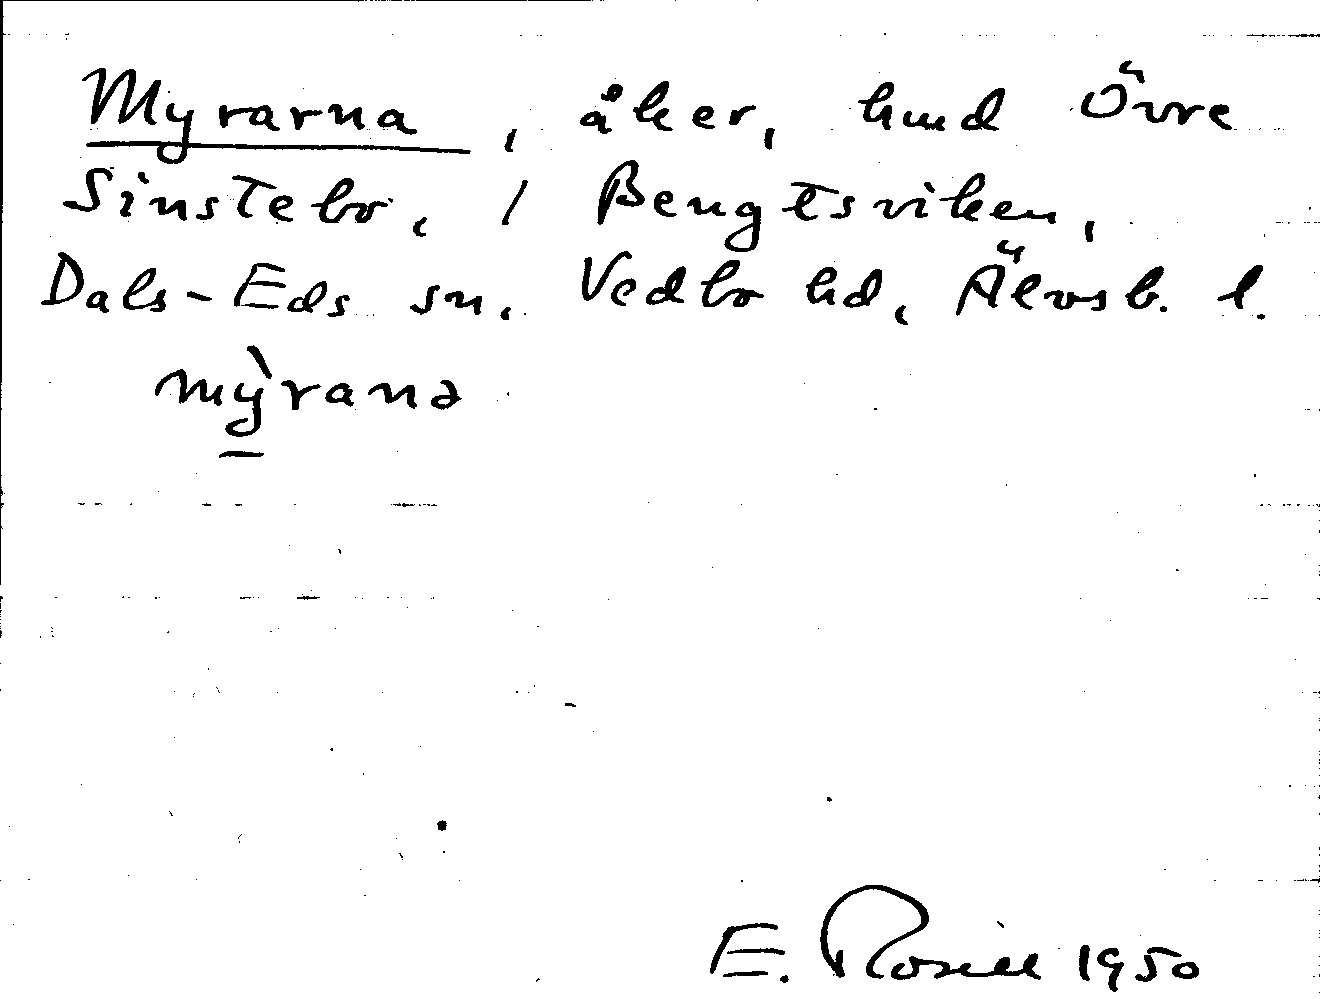 Myrarna, åker, hmd Övre
Sinstebo, / Bengtsviken,
Dals-Eds sn. Vedbo hd, Älvsb. l.
mỳranə
E. Rosell 1950